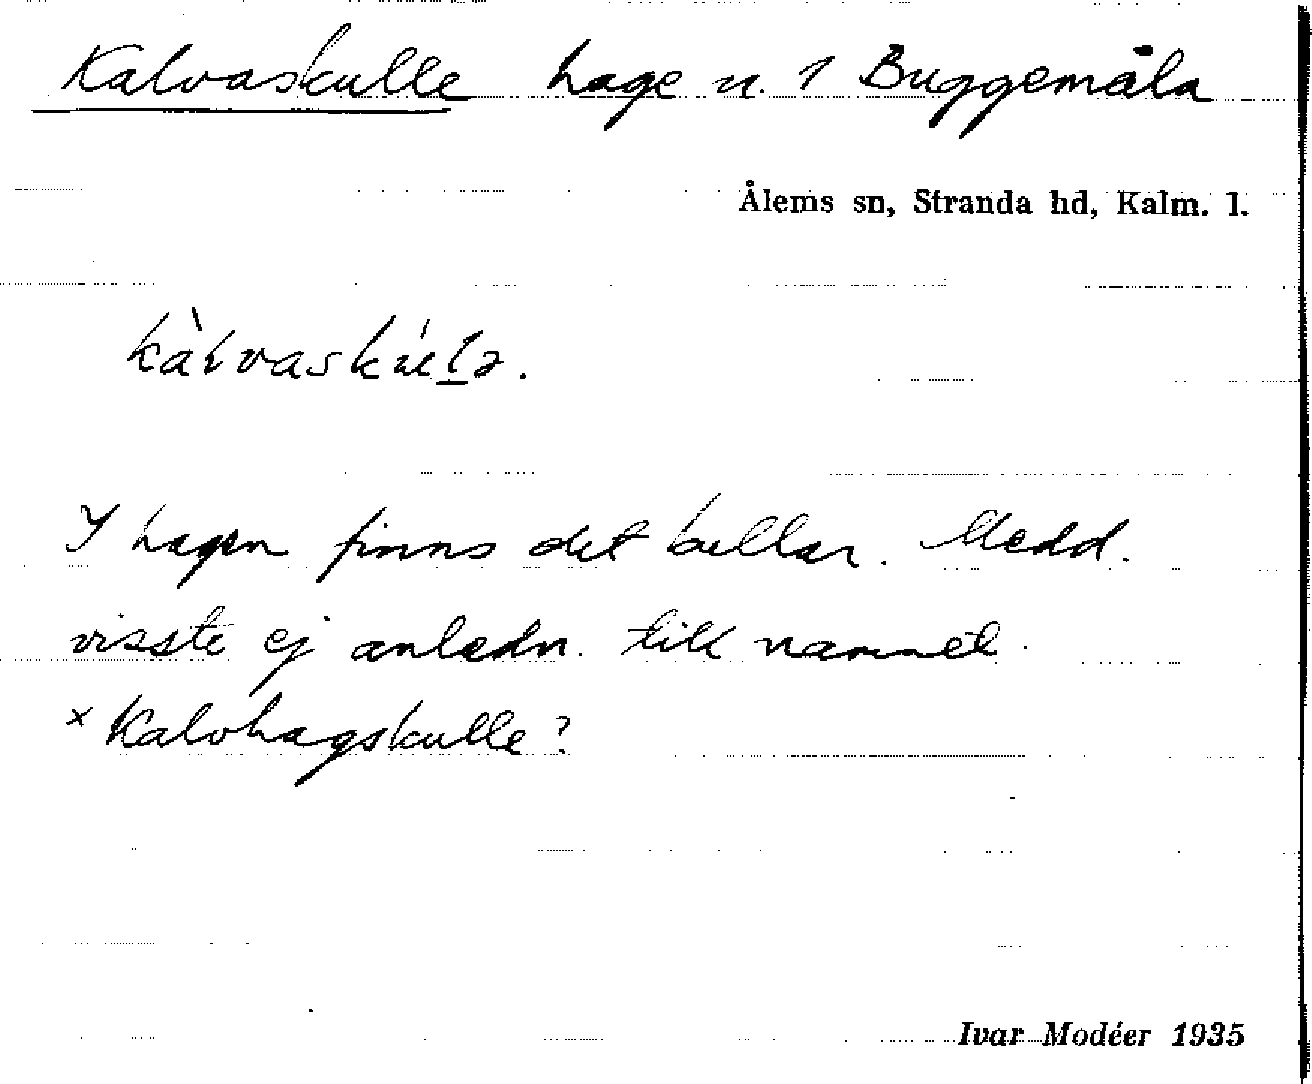 Kalvaskulle hage n. 1 Buggemåla
Ålems sn, Stranda hd, Kalm. l.
I hagen finns det kullar. Medd.
visste ej anledn. till namnet.
× Kalvhagskulle?
Ivar Modéer 1935